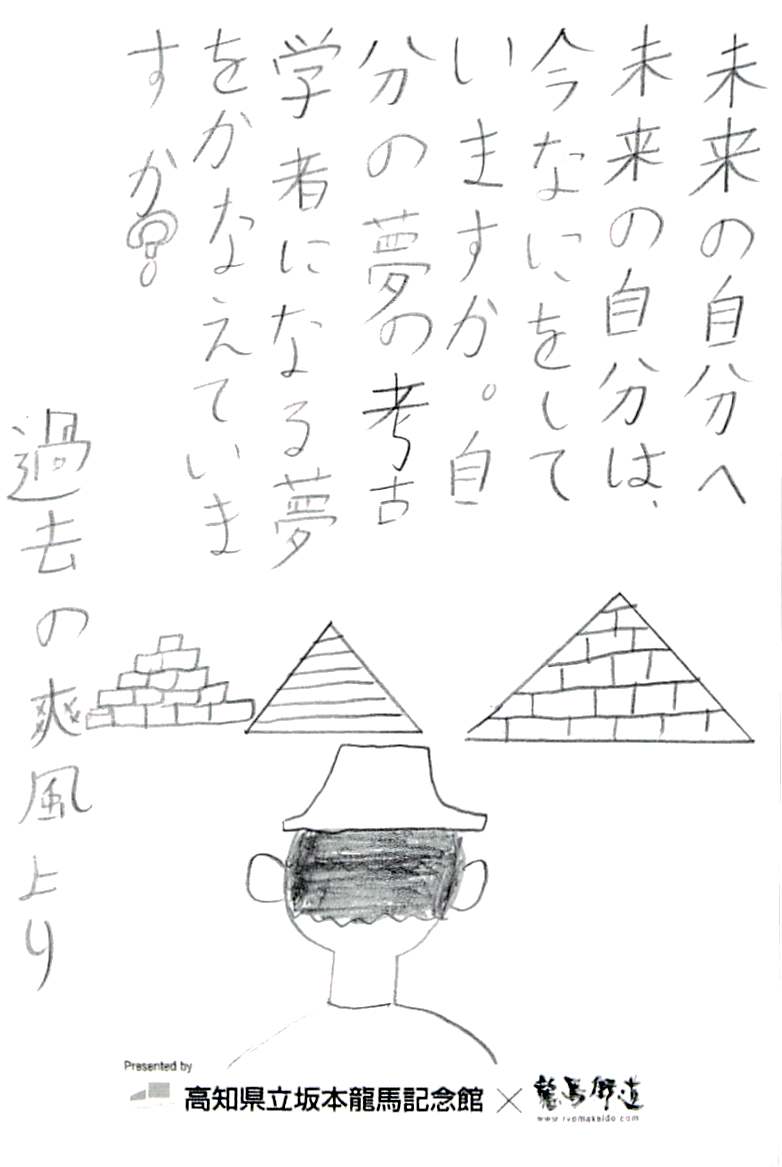 未来の自分へ
未来の自分は、
今なにをして
いますか。自
分の夢の考古
学者になる夢
をかなえていま
すか?
過去の爽風より
Presented by
高知県立坂本龍馬記念館×龍馬街道
www.ryomakaido.com